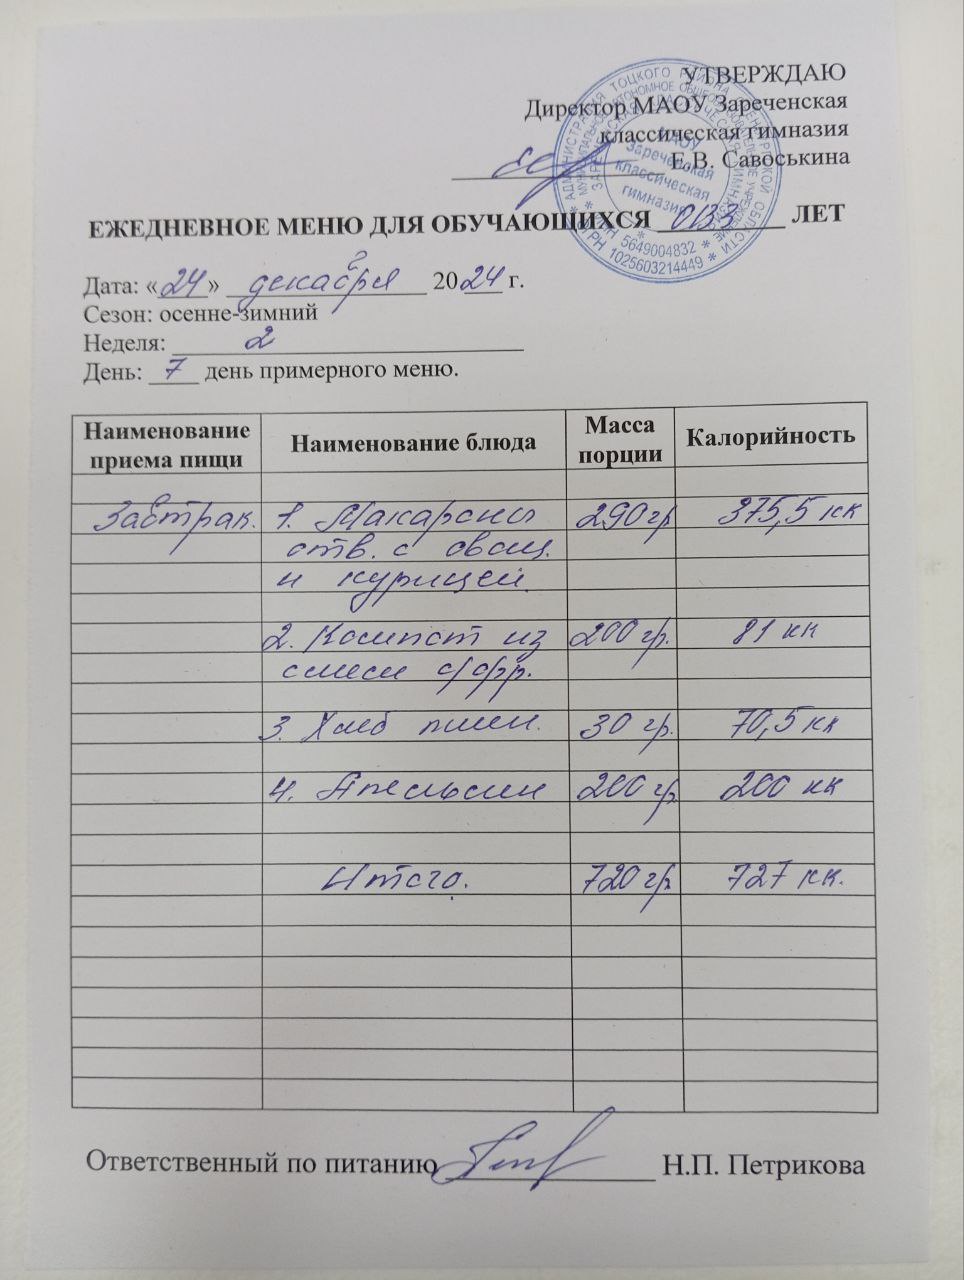 УТВЕРЖДАЮ
Директор МАОУ Зареченская
классическая гимназия
Е.В. Савоськина
МАОУ
Зареченская
классическая
гимназия
ИНН 5649004832 * ОГРН 1025603214449
ЕЖЕДНЕВНОЕ МЕНЮ ДЛЯ ОБУЧАЮЩИХСЯ ОВЗ ЛЕТ
Дата: «24» декабря 2024 г.
Сезон: осенне-зимний
Неделя: 2
День: 7 день примерного меню.
Наименование приема пищи Наименование блюда Масса порции Калорийность
Завтрак. 1. Макароны 290 гр 375,5 кк
отв. с овощ.
и курицей.
2. Компот из 200 гр. 81 кк
смеси с/фр.
3. Хлеб пшен. 30 гр. 70,5 кк
4. Апельсин 200 гр 200 кк
Итого. 720 гр 727 кк.
Ответственный по питанию Н.П. Петрикова